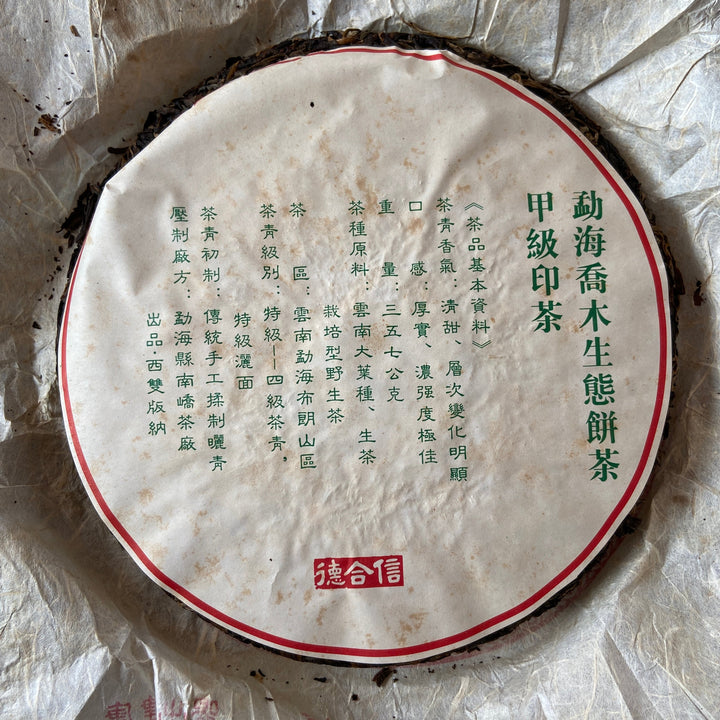 勐海喬木生態餅茶
甲級印茶
《茶品基本資料》
茶青香氣：清甜、層次變化明顯
口感：厚實、濃强度極佳
重量：三五七公克
茶種原料：雲南大葉種、生茶
栽培型野生茶
茶區：雲南勐海布朗山區
茶青級別：特級——四級茶青，
特級灑面
茶青初制：傳統手工揉制曬青
壓制廠方：勐海縣南嶠茶廠
出品·西雙版納
德合信